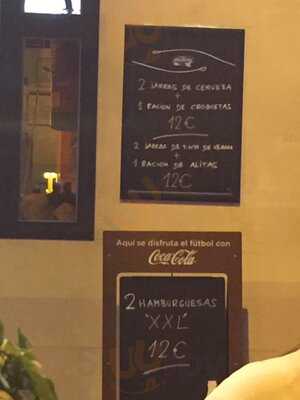 2 JARRAS DE CERVEZA
+
1 RACION DE CROQUETAS
12€
2 JARRAS DE TINTO DE VERANO
+
1 RACION DE ALITAS
12€
Aquí se disfruta el fútbol con
Coca-Cola
2 HAMBURGUESAS
"XXL"
12€